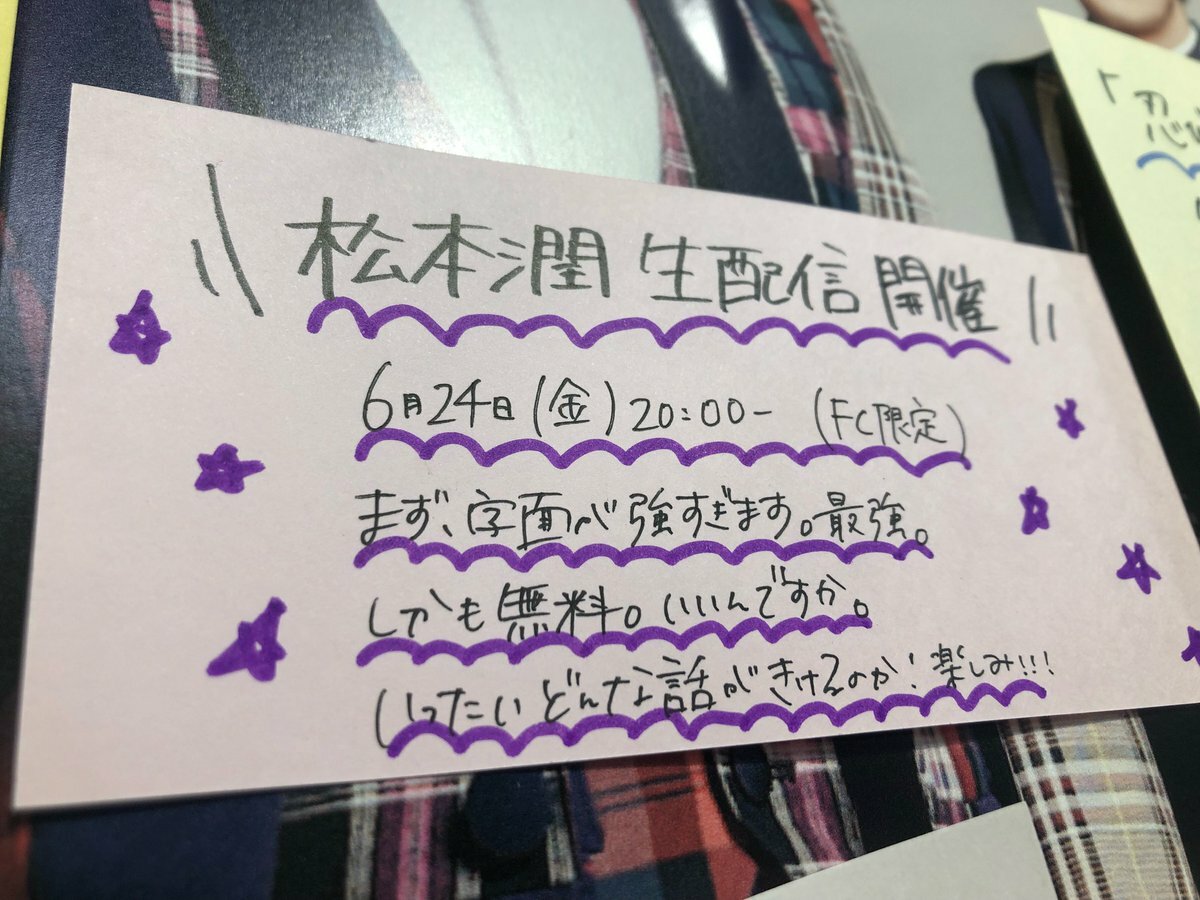 \\ 松本潤 生配信 開催 //
6月24日(金)20:00- (FC限定)
まず、字面が強すぎます。最強。
しかも無料。いいんですか。
いったいどんな話がきけるのか!楽しみ!!!
「忍び